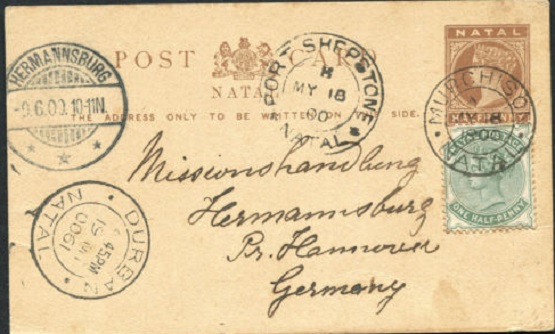 NATAL
POST CARD
NATAL
THE ADDRESS ONLY TO BE WRITTEN ON SIDE.
HERMANNSBURG
9.6.00.10-11N.
PORT SHEPSTONE
MY 18
00
NATAL
MURCHISO
MY 18
NATAL
ONE HALF-PENNY
Missionshandlung
Hermannsburg
Pr. Hannover
Germany
DURBAN
45PM
19
1900
NATAL